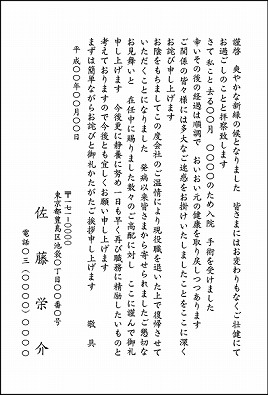 謹啓　爽やかな新緑の候となりました　皆さまにはお変わりもなくご壮健にて
お過ごしのことと拝察致します
さて私こと　去る〇〇月　〇〇〇〇のため入院　手術を受けました
幸いその後の経過は順調で　おいおい元の健康を取り戻しつつあります
ご関係の皆々様には多大なご迷惑をお掛けいたしましたことをここに深く
お詫び申し上げます
お陰をもちましてこの度会社のご温情により現役職を退いた上で復帰させて
いただくことになりました　発病以来皆さまから寄せられましたご懇切な
お見舞いと　在任中に賜りました数々のご高配に対し　ここに謹んで御礼
申し上げます　今後更に静養に努め一日も早く再び職務に精励したいものと
考えておりますので今後とも宜しくお願い申し上げます
まずは簡単ながらお詫びと御礼かたがたご挨拶申し上げます　　敬　具
平成〇〇年〇〇月〇〇日
〒一七一-〇〇〇〇
東京都豊島区池袋〇丁目〇〇番〇号
佐　藤　栄　介
電話〇三（〇〇〇〇）〇〇〇〇